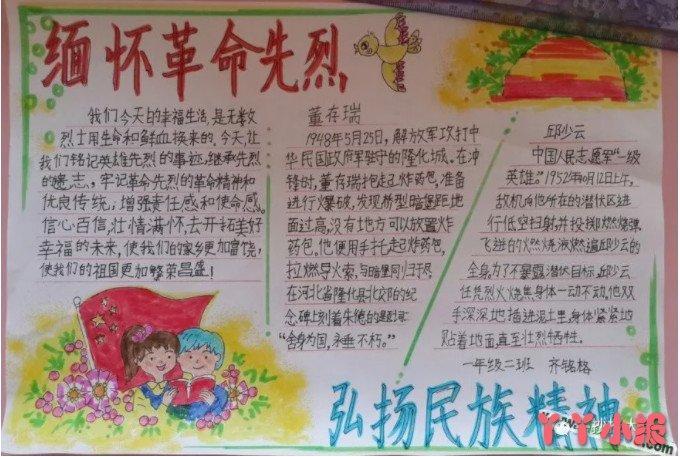 缅怀革命先烈
我们今天的幸福生活,是无数
烈士用生命和鲜血换来的。今天,让
我们铭记英雄先烈的事迹,继承先烈
的遗志,牢记革命先烈的革命精神和
优良传统,增强责任感和使命感。
信心百信,壮情满怀,去开拓美好
幸福的未来,使我们的家乡更加富饶,
使我们的祖国更加繁荣昌盛!
董存瑞
1948年5月25日,解放军攻打中
华民国政府军驻守的隆化城。在冲
锋时,董存瑞抱起炸药包,准备
进行爆破,发现桥型暗堡距地
面过高,没有地方可以放置炸
药包。他便用手托起炸药包,
拉燃导火索,与暗堡同归于尽
在河北省隆化县北郊的纪
念碑上刻着朱德的题词:
“舍身为国,永垂不朽。”
邱少云
中国人民志愿军“一级
英雄。”1952年10月12日上午,
敌机向他所在的潜伏区进
行低空扫射,并投掷燃烧弹,
飞迸的燃烧液燃遍邱少云的
全身,为了不暴露潜伏目标,邱少云
任凭烈火烧焦身体一动不动,他双
手深深地插进泥土里,身体紧紧地
贴着地面,直至壮烈牺牲。
一年级二班 齐铭格
弘扬民族精神
丫丫小报